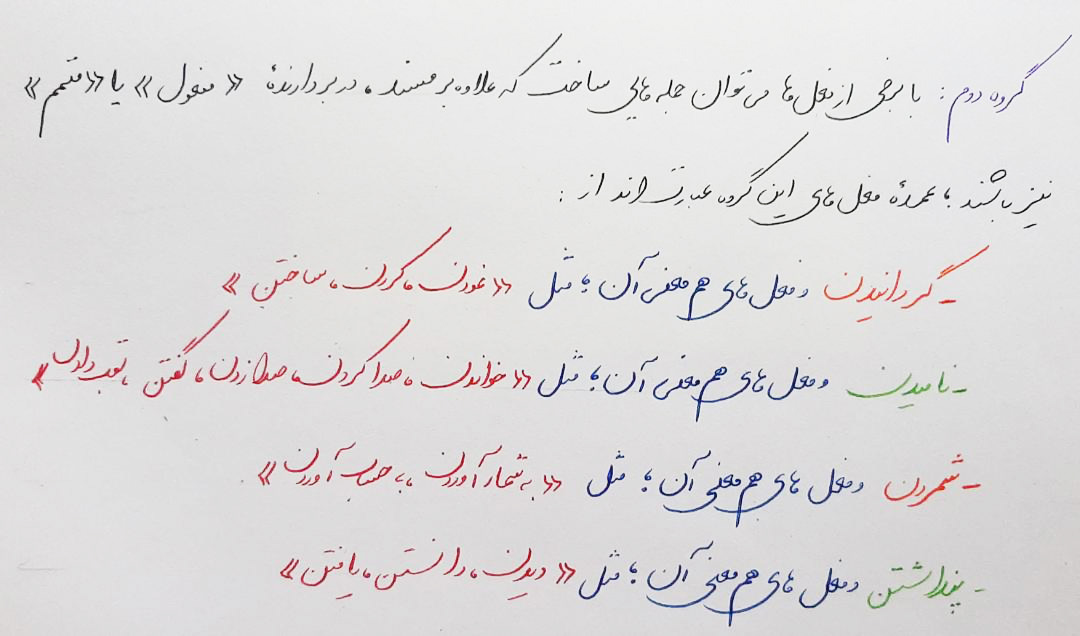 گروه دوم : با برخی از فعل‌ها می‌توان جمله‌هایی ساخت که علاوه بر مسند ، در بردارندهٔ « مفعول » یا « متمم »
نیز باشند ؛ عمدهٔ فعل های این گروه عبارت اند از :
- گردانیدن و فعل های هم معنی آن ؛ مثل « نمودن ، کردن ، ساختن »
- نامیدن و فعل های هم معنی آن ؛ مثل « خواندن ، صدا کردن ، صدا زدن ، گفتن ، لقب دادن »
- شمردن و فعل های هم معنی آن ؛ مثل « به شمار آوردن ، به حساب آوردن »
- پنداشتن و فعل های هم معنی آن ؛ مثل « دیدن ، دانستن ، یافتن »